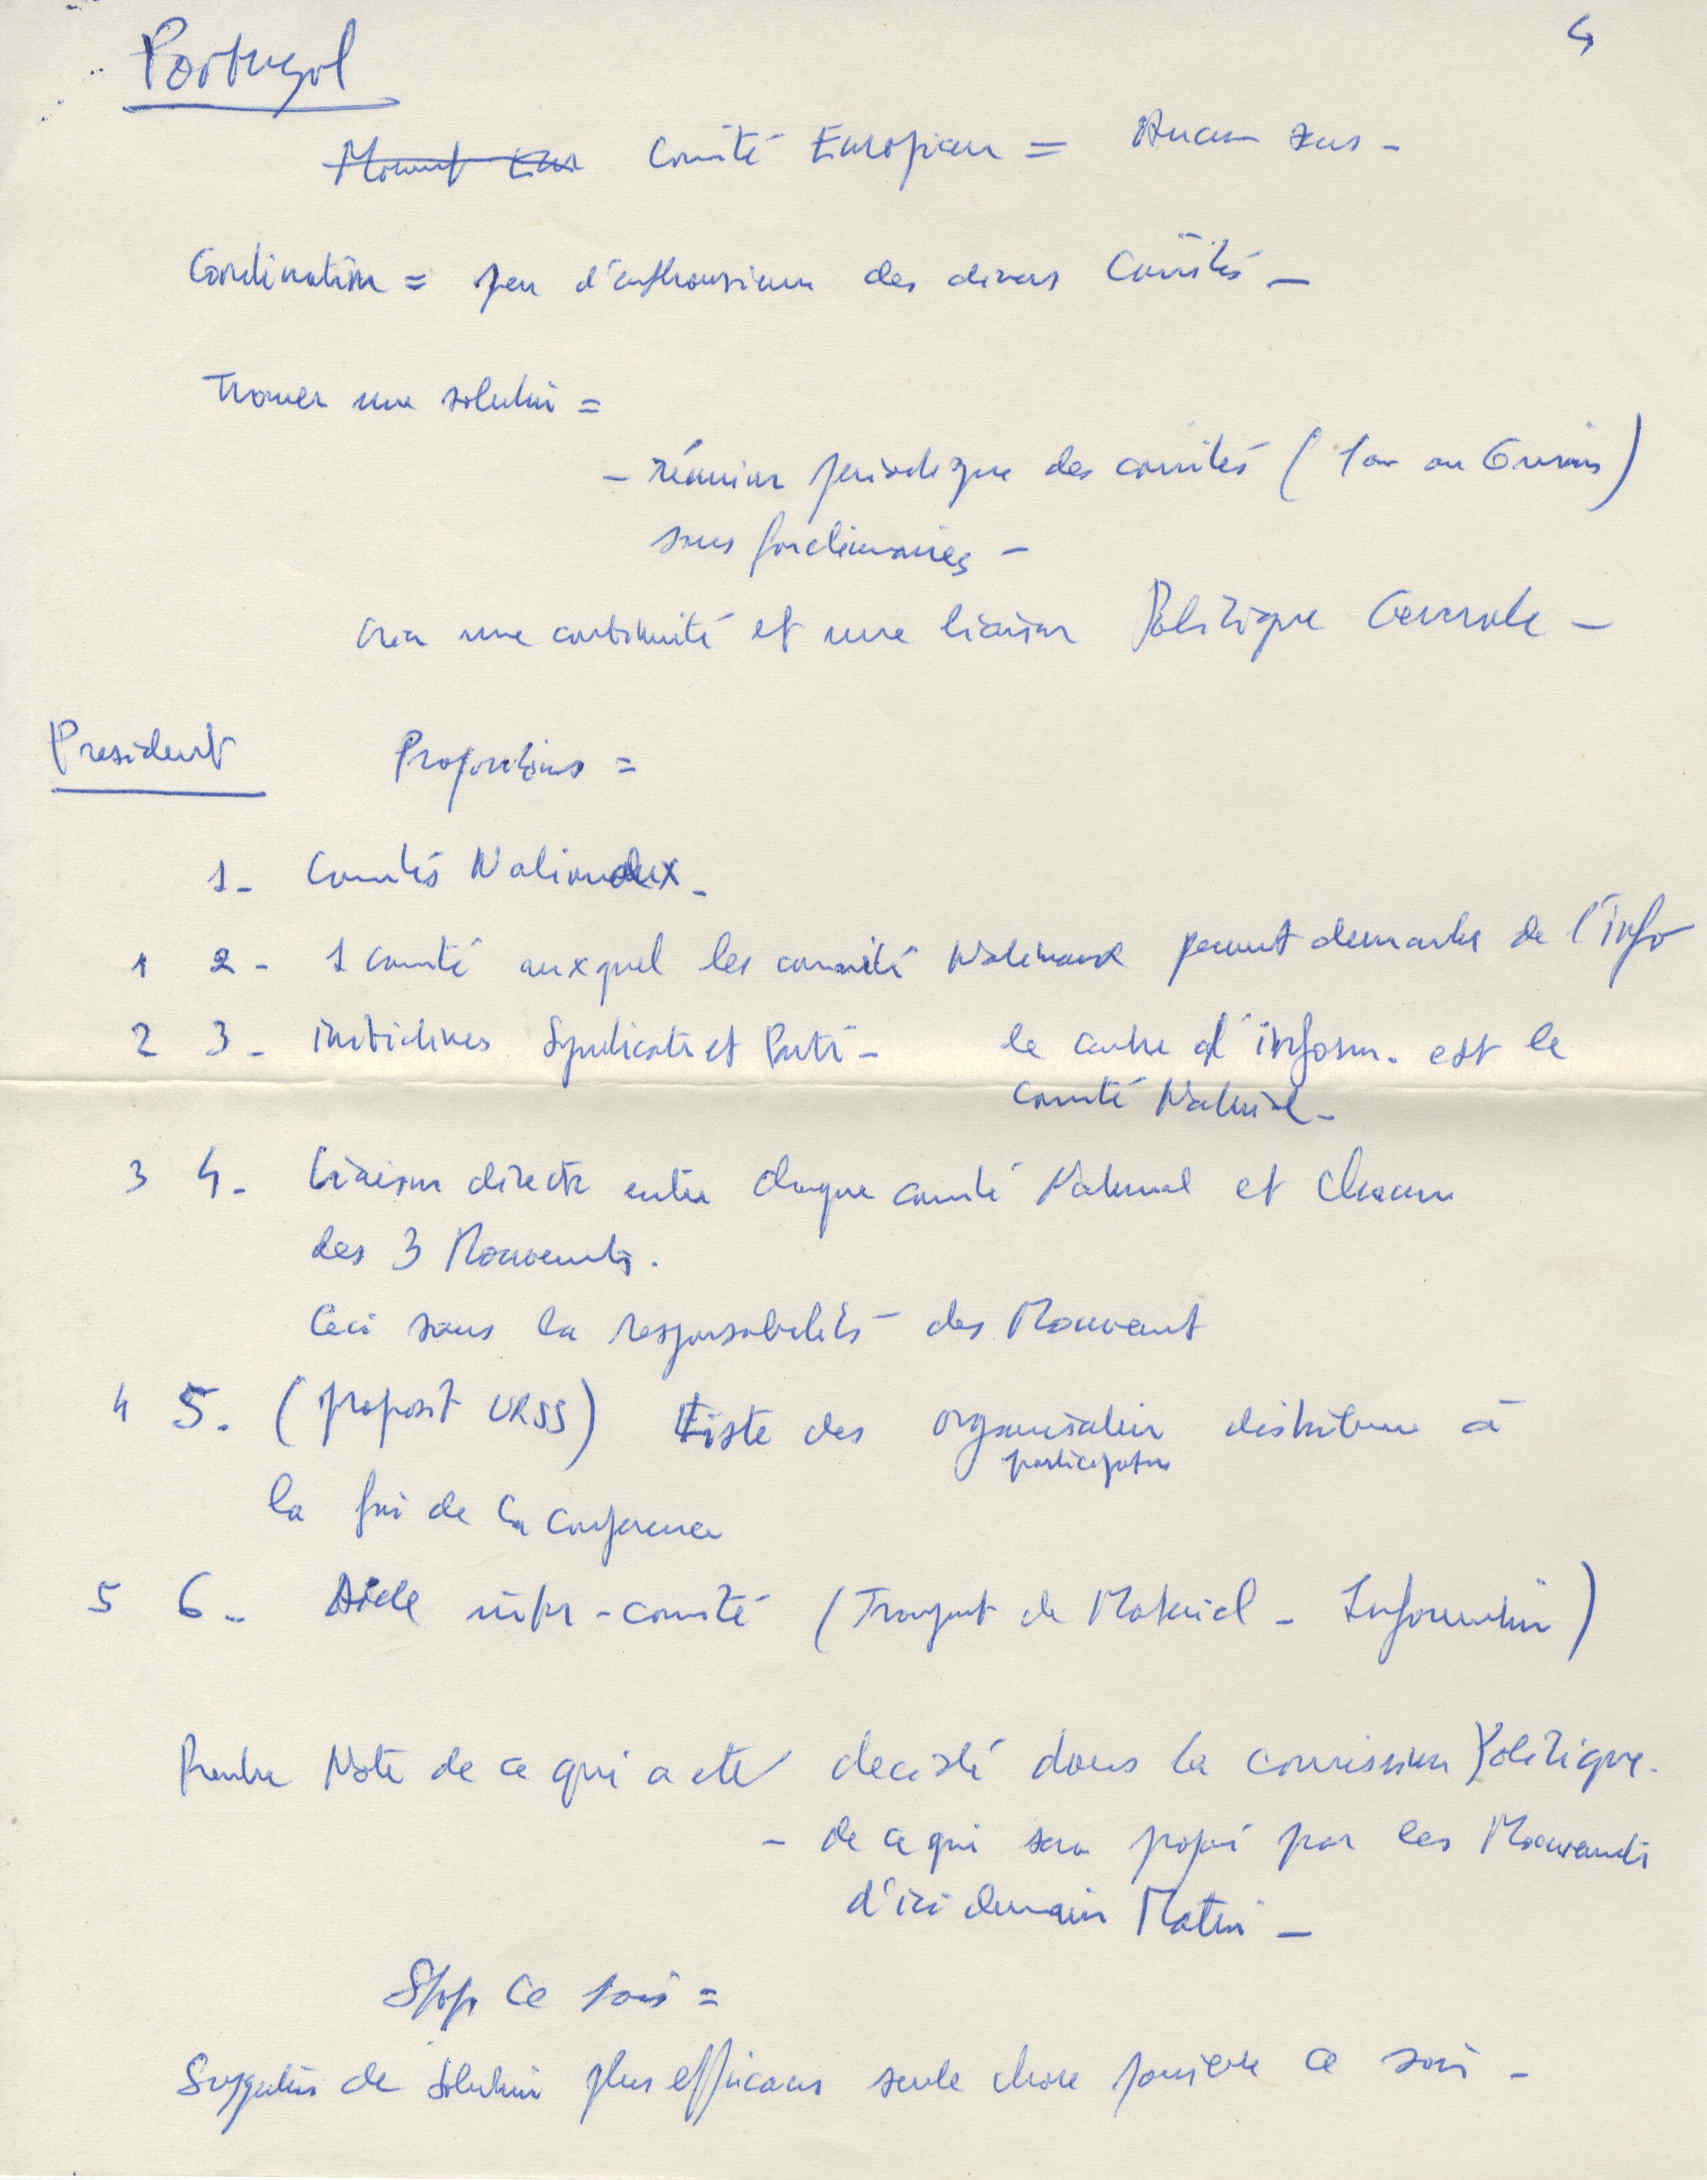 4
Portugal
Comité Européen = Aucun sens -
Coordination = peu d'enthousiasme des divers Comités -
Trouver une solution =
- réunion periodique des comités (1 an ou 6 mois)
sans fonctionnaires -
créer une continuité et une liaison Politique Generale -
President Propositions =
1 - Comités Nationaux -
1 2 - 1 comité auxquel les comités Nationaux peuvent demander de l'info
2 3 - initiatives Syndicats et Parti - le centre d'inform. est le
comité National -
3 4 - Liaison directe entre chaque comité National et chacun
des 3 Mouvements.
Ceci sous la responsabilité des Mouvement
4 5. (proposit URSS) Liste des organisation distribuée à
participatur
la fin de la conference
5 6 - Aide inter-comité (Transport de Materiel - Information)
Prendre Note de ce qui a eté decidé dans la commission Politique.
- de ce qui sera proposé par les Mouvements
d'ici demain Matin -
Stop ce soir =
Suggestion de solution plus efficaces seule chose possible ce soir -